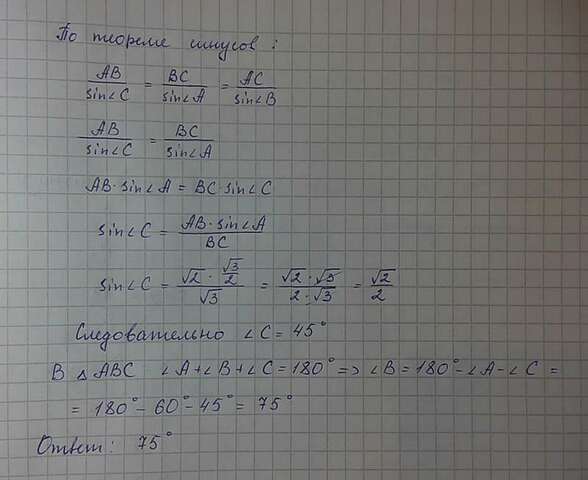 По теореме синусов:
AB/sin∠C = BC/sin∠A = AC/sin∠B
AB/sin∠C = BC/sin∠A
AB·sin∠A = BC·sin∠C
sin∠C = AB·sin∠A/BC
sin∠C = √2·√3/2/√3 = √2·√3/2·√3 = √2/2
Следовательно ∠C = 45°
В △ABC ∠A+∠B+∠C=180° => ∠B = 180°-∠A-∠C =
= 180° - 60° - 45° = 75°
Ответ: 75°